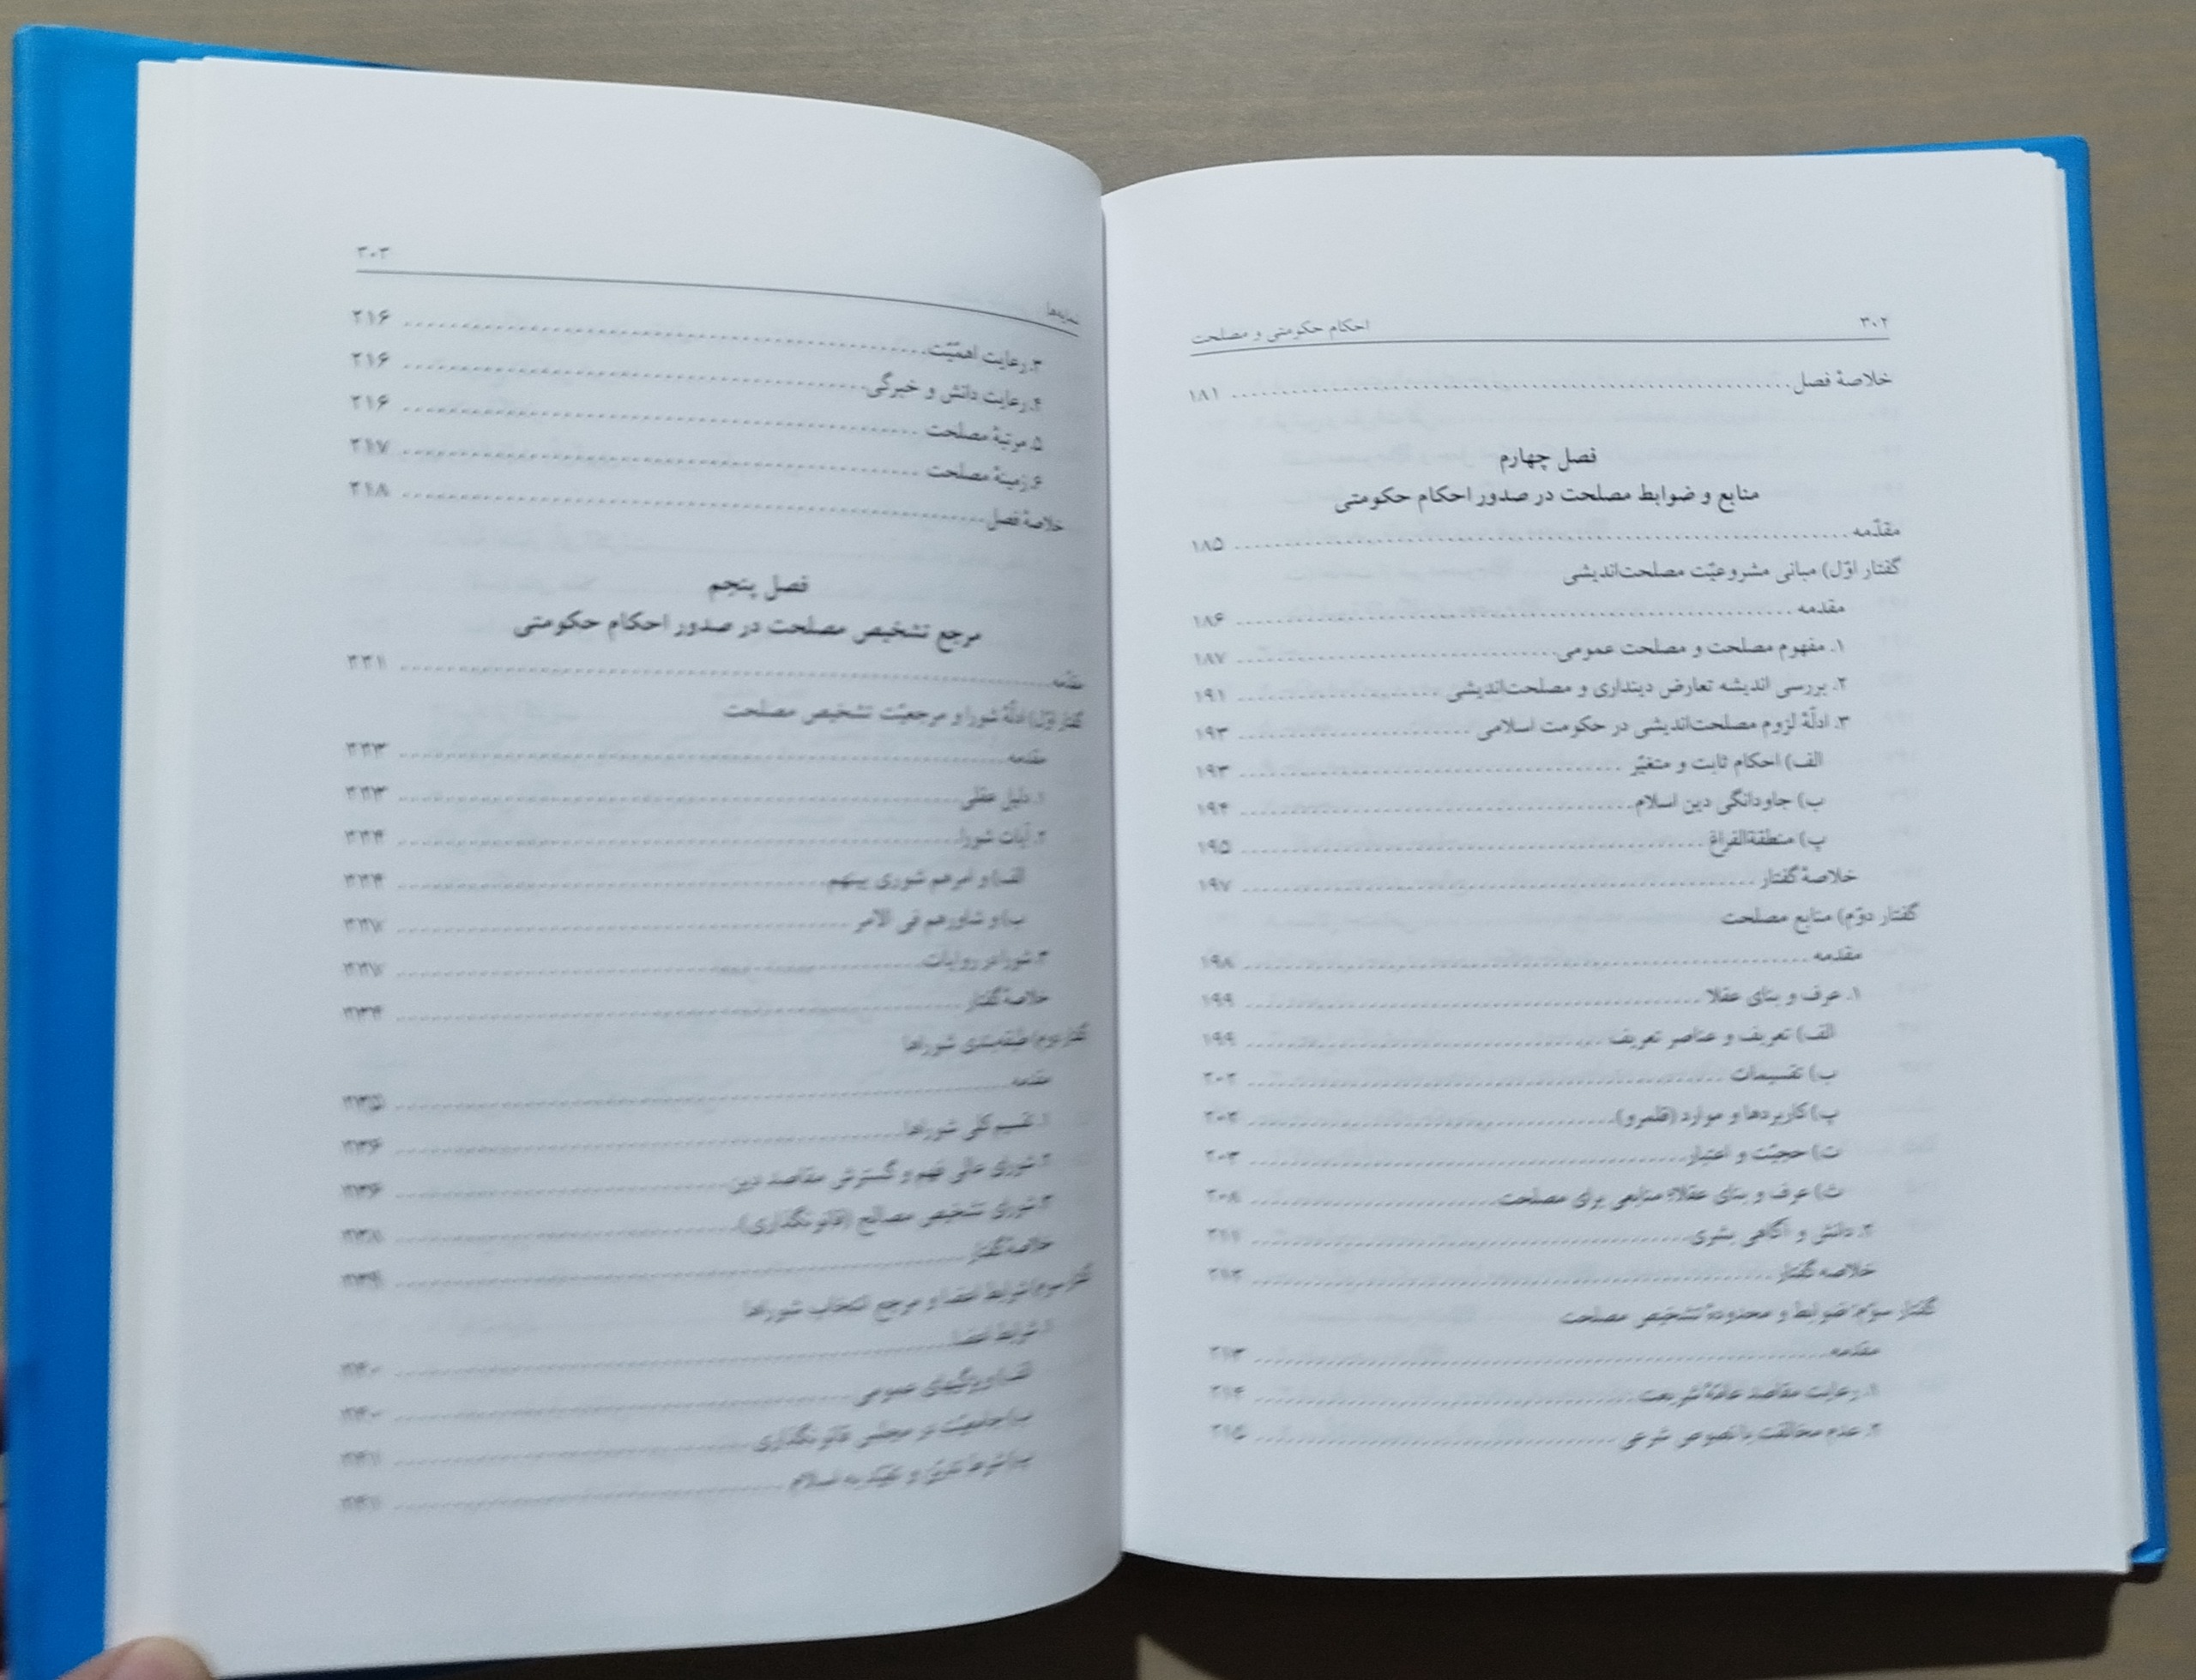 ۳۰۲
احکام حکومتی و مصلحت
خلاصهٔ فصل ۱۸۱
فصل چهارم
منابع و ضوابط مصلحت در صدور احکام حکومتی
مقدّمه ۱۸۵
گفتار اوّل) مبانی مشروعیّت مصلحت‌اندیشی
مقدمه ۱۸۶
۱. مفهوم مصلحت و مصلحت عمومی ۱۸۷
۲. بررسی اندیشه تعارض دینداری و مصلحت‌اندیشی ۱۹۱
۳. ادلّهٔ لزوم مصلحت‌اندیشی در حکومت اسلامی ۱۹۳
الف) احکام ثابت و متغیّر ۱۹۳
ب) جاودانگی دین اسلام ۱۹۴
پ) منطقةالفراغ ۱۹۵
خلاصهٔ گفتار ۱۹۷
گفتار دوّم) منابع مصلحت
مقدمه ۱۹۸
۱. عرف و بنای عقلا ۱۹۹
الف) تعریف و عناصر تعریف ۱۹۹
ب) تقسیمات ۲۰۲
پ) کاربردها و موارد (قلمرو) ۲۰۲
ت) حجیّت و اعتبار ۲۰۳
ث) عرف و بنای عقلا؛ منابعی برای مصلحت ۲۰۸
۲. دانش و آگاهی بشری ۲۱۱
خلاصه گفتار ۲۱۲
گفتار سوّم) ضوابط و محدودهٔ تشخیص مصلحت
مقدمه ۲۱۳
۱. رعایت مقاصد عامّهٔ شریعت ۲۱۴
۲. عدم مخالفت با نصوص شرعی ۲۱۵
۳۰۳
نمایه‌ها
۳. رعایت اهمّیّت ۲۱۶
۴. رعایت دانش و خبرگی ۲۱۶
۵. مرتبهٔ مصلحت ۲۱۶
۶. زمینهٔ مصلحت ۲۱۷
خلاصهٔ فصل ۲۱۸
فصل پنجم
مرجع تشخیص مصلحت در صدور احکام حکومتی
مقدّمه ۲۲۱
گفتار اوّل) ادلّهٔ شورا و مرجعیّت تشخیص مصلحت
مقدمه ۲۲۳
۱. دلیل عقلی ۲۲۳
۲. آیات شورا ۲۲۴
الف) و امرهم شوری بینهم ۲۲۴
ب) و شاورهم فی الامر ۲۲۷
۳. شورا در روایات ۲۲۷
خلاصهٔ گفتار ۲۳۴
گفتار دوم) طبقه‌بندی شوراها
مقدمه ۲۳۵
۱. تقسیم کلی شوراها ۲۳۶
۲. شورای عالی فهم و گسترش مقاصد دین ۲۳۶
۳. شورای تشخیص مصالح (قانونگذاری) ۲۳۸
خلاصهٔ گفتار ۲۳۹
گفتار سوم) شرایط اعضا و مرجع انتخاب شوراها
۱. شرایط اعضا ۲۴۰
الف) ویژگیهای عمومی ۲۴۰
ب) جامعیّت در مجلس قانونگذاری ۲۴۱
به اسلام ۲۴۱